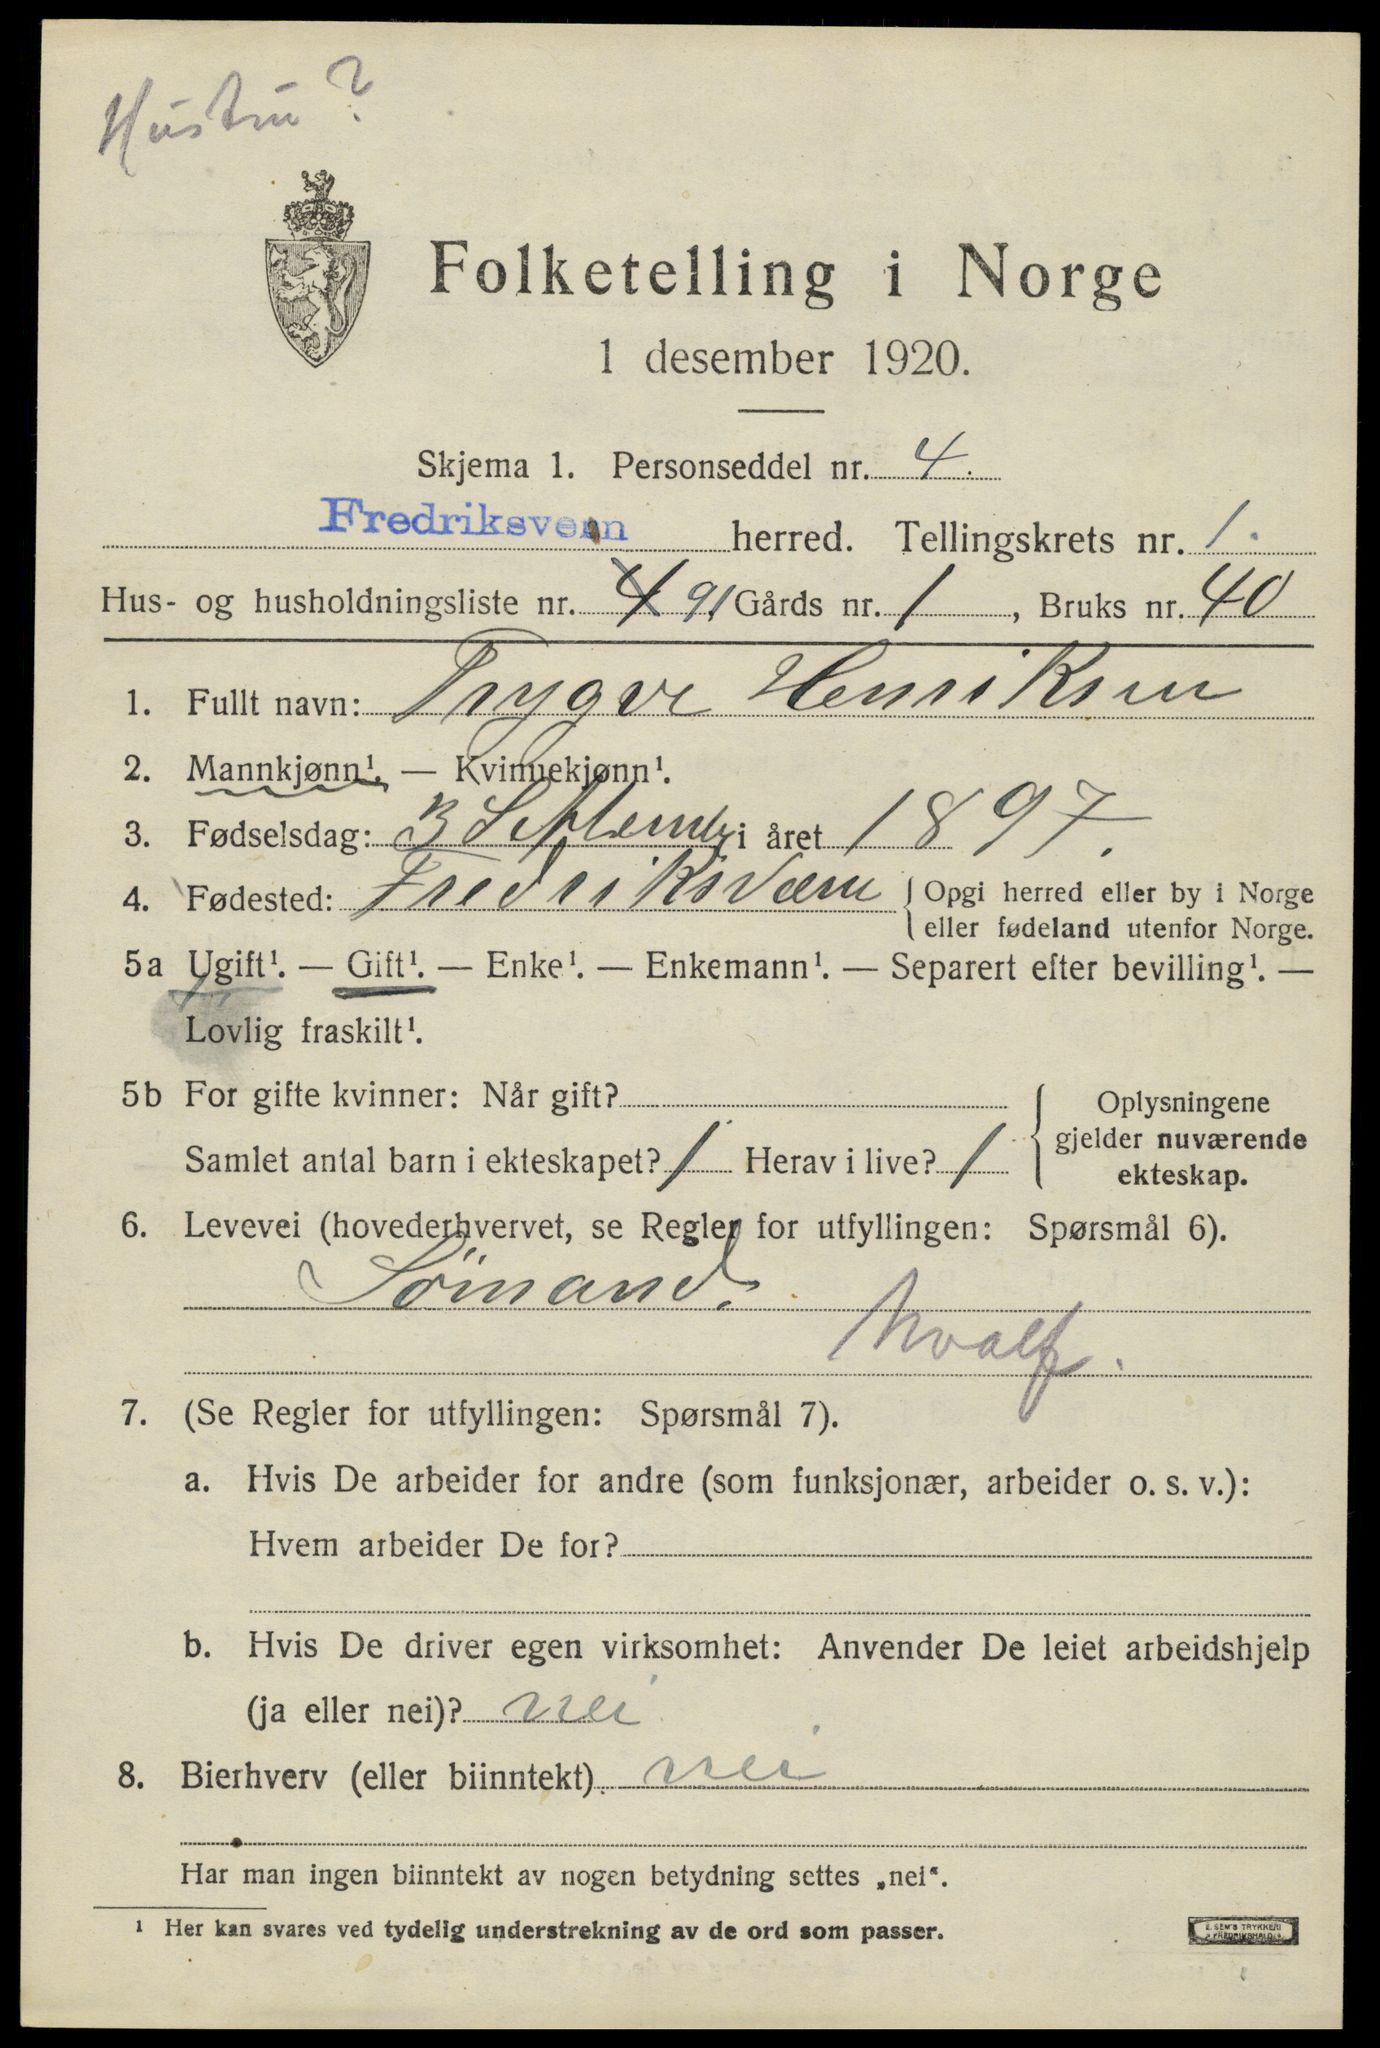 Hustru?
Folketelling i Norge
1 desember 1920.
Skjema 1. Personseddel nr. 4.
Fredriksvern herred. Tellingskrets nr. 1.
Hus- og husholdningsliste nr. 4 91 Gårds nr. 1, Bruks nr. 40
1. Fullt navn: Trygve Henriksen
2. Mannkjønn¹. — Kvinnekjønn¹.
3. Fødselsdag: 3 Septemb i året 1897.
4. Fødested: Fredriksværn { Opgi herred eller by i Norge
eller fødeland utenfor Norge.
5a Ugift¹. — Gift¹. — Enke¹. — Enkemann¹. — Separert efter bevilling¹. —
Lovlig fraskilt¹.
5b For gifte kvinner: Når gift?
Samlet antal barn i ekteskapet? 1 Herav i live? 1
{ Oplysningene
gjelder nuværende
ekteskap.
6. Levevei (hovederhvervet, se Regler for utfyllingen: Spørsmål 6).
Sömand.
7. (Se Regler for utfyllingen: Spørsmål 7).
a. Hvis De arbeider for andre (som funksjonær, arbeider o. s. v.):
Hvem arbeider De for?
b. Hvis De driver egen virksomhet: Anvender De leiet arbeidshjelp
(ja eller nei)? nei
8. Bierhverv (eller biinntekt) nei
Har man ingen biinntekt av nogen betydning settes „nei“.
¹ Her kan svares ved tydelig understrekning av de ord som passer.
E. SEM'S TRYKKERI
FREDRIKSHALD